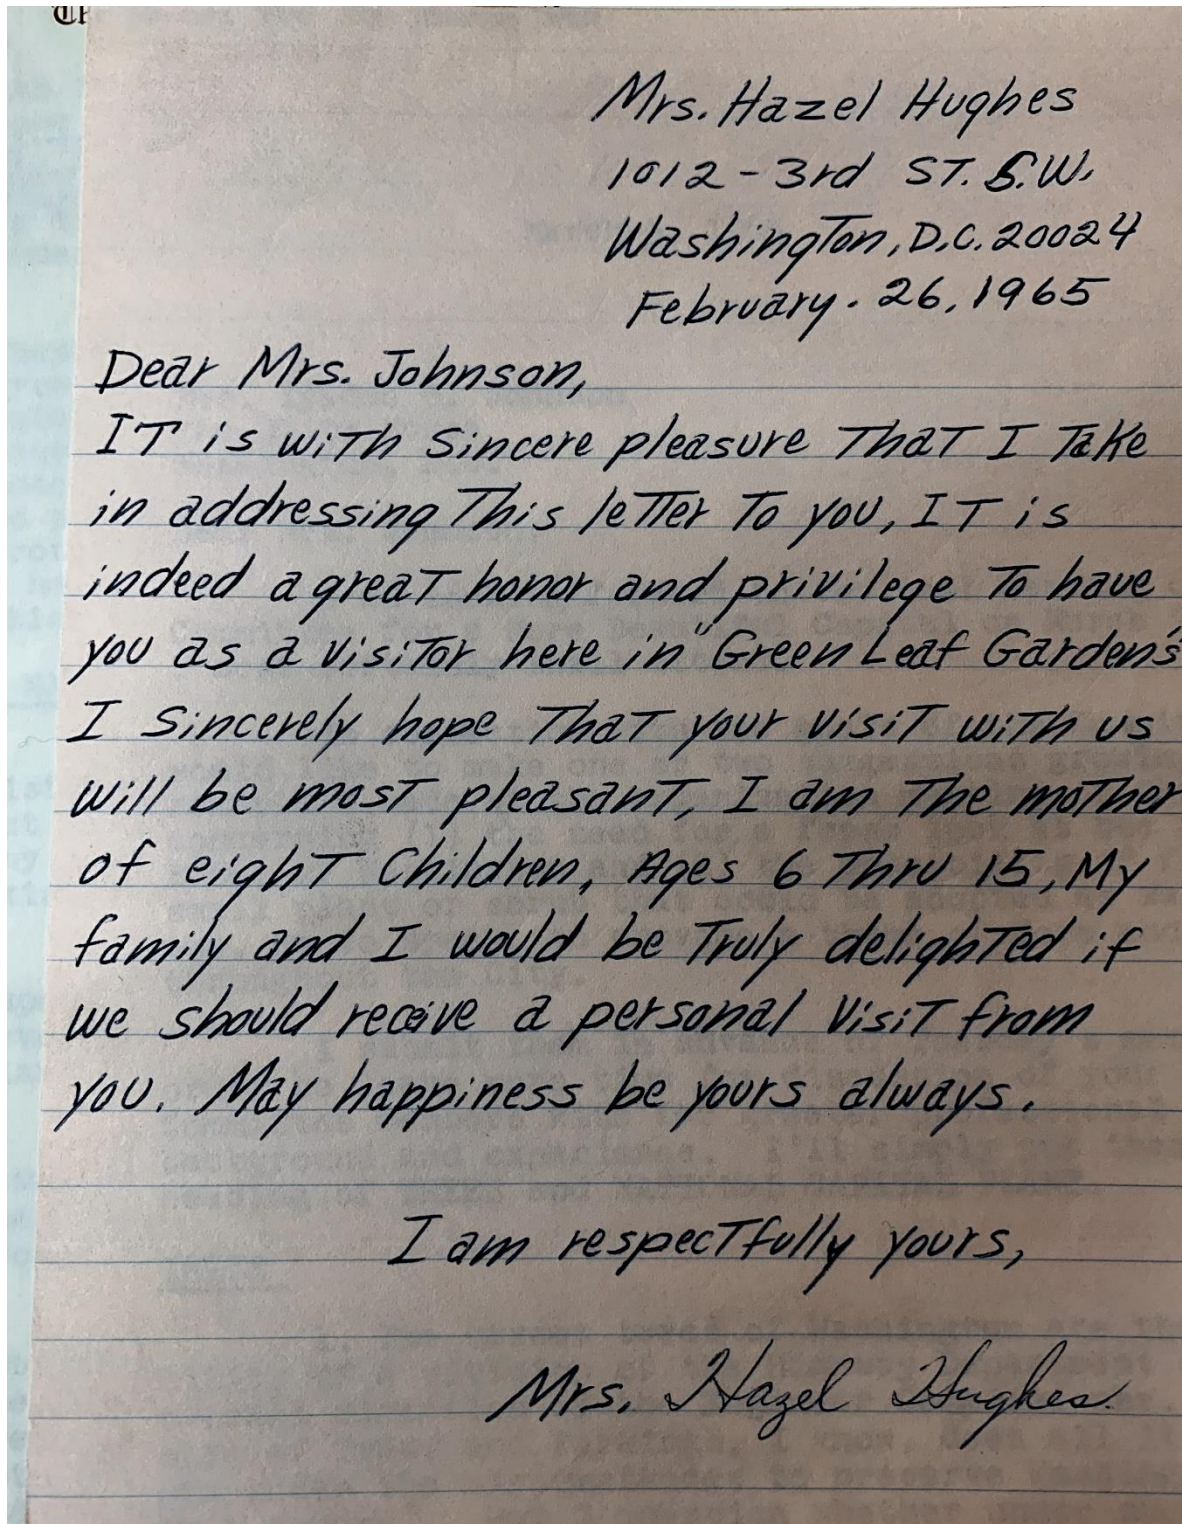 Mrs. Hazel Hughes
1012 - 3rd ST. S.W.
Washington, D.C. 20024
February. 26, 1965
Dear Mrs. Johnson,
IT is with Sincere pleasure That I Take
in addressing This letter To you, IT is
indeed a great honor and privilege To have
you as a visitor here in "Green Leaf Gardens"
I Sincerely hope That your visit with us
will be most pleasant, I am The mother
of eight Children, Ages 6 Thru 15, My
family and I would be Truly delighted if
we should receive a personal Visit from
you. May happiness be yours always.
I am respectfully yours,
Mrs. Hazel Hughes.